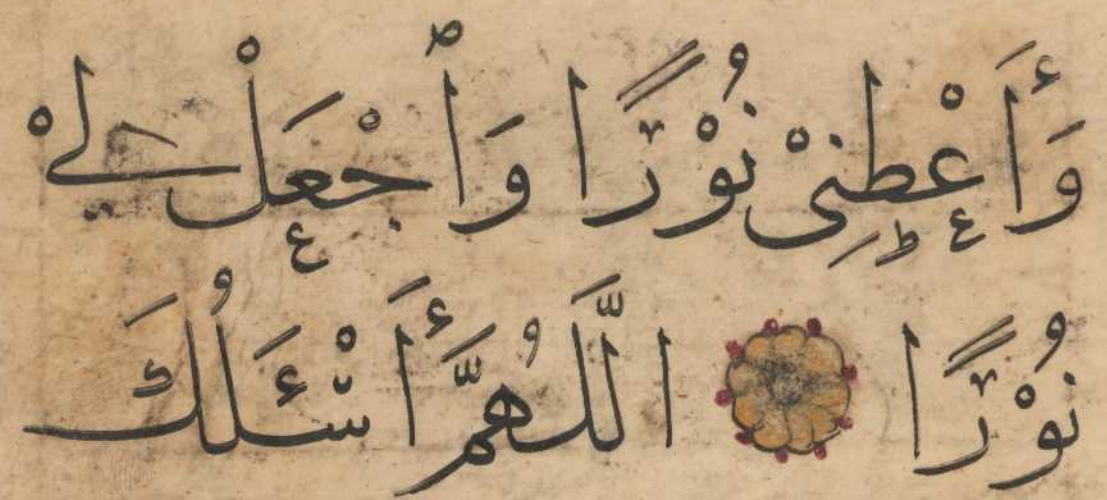 وَأَعْطِنِىْ نُوْرًا وَٱجْعَلْ لِىْ
نُوْرًا اَللّٰهُمَّ أَسْئَلُكَ